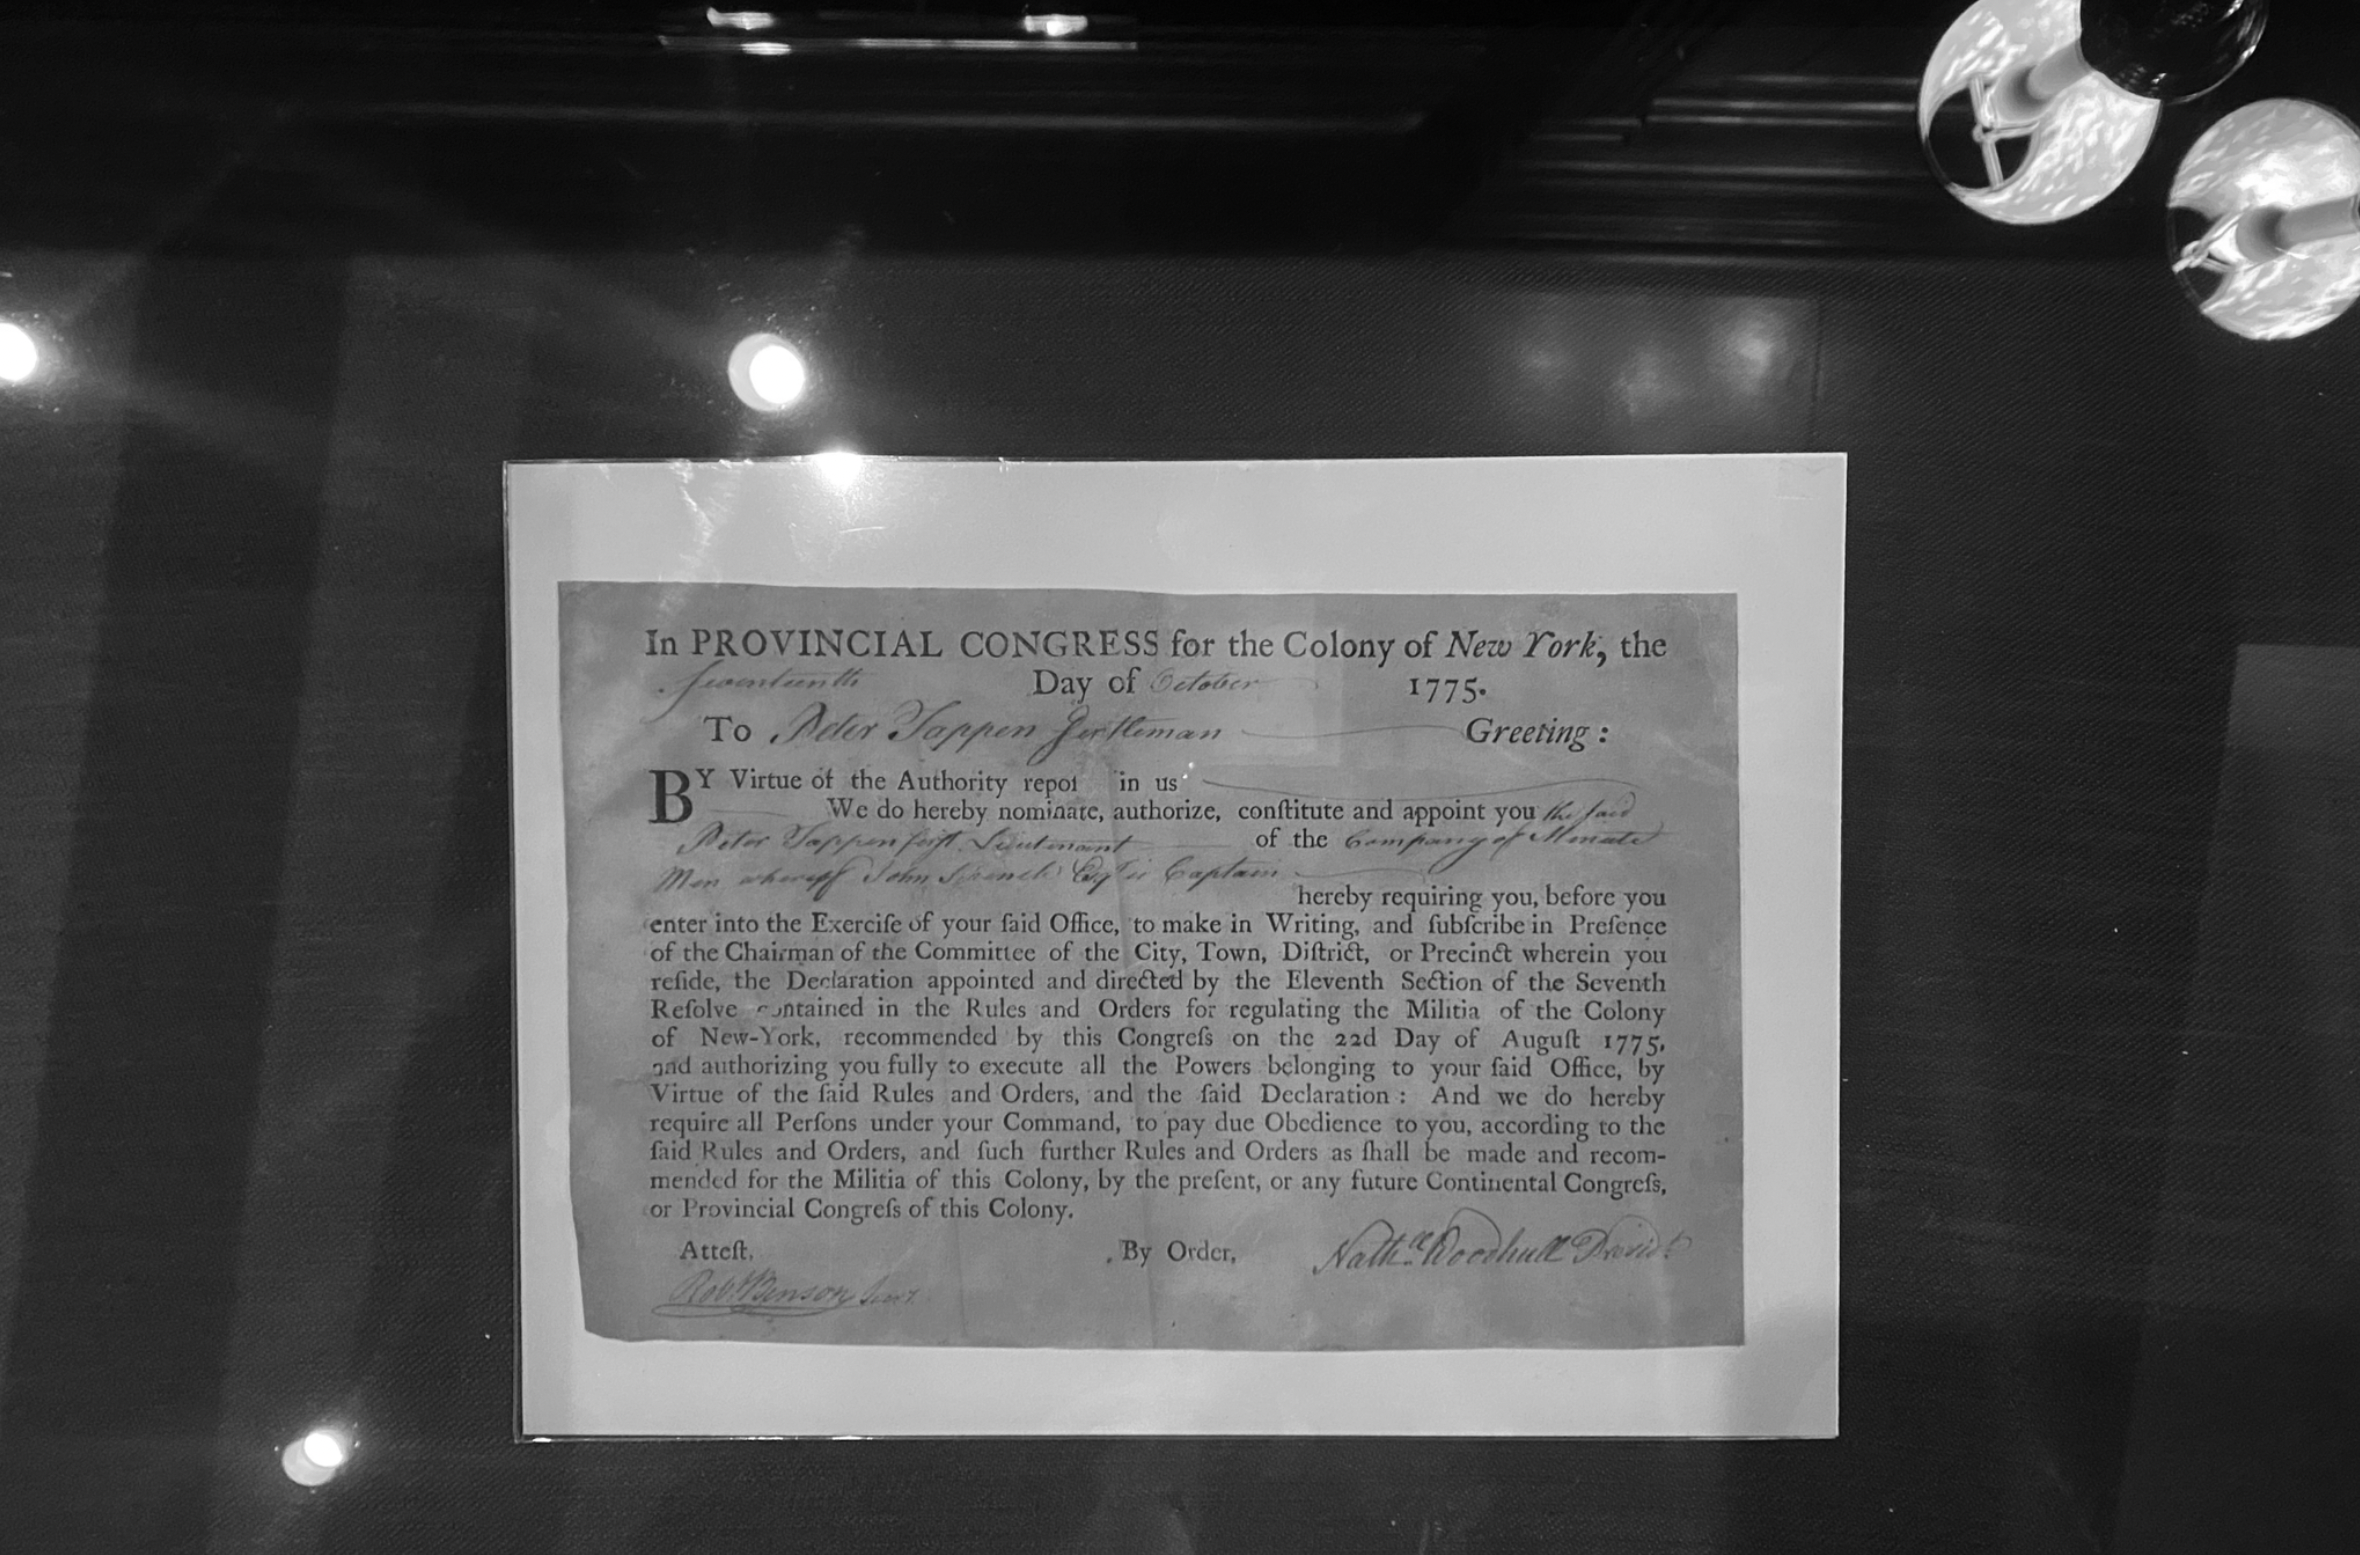 In PROVINCIAL CONGRESS for the Colony of New York, the
Seventeenth Day of October 1775.
To Peter Tappen Gentleman Greeting :
BY Virtue of the Authority repoſ in us
We do hereby nominate, authorize, conſtitute and appoint you the ſaid
Peter Tappen firſt Lieutenant of the Company of Minute
Men whereof John Esqr is Captain
hereby requiring you, before you
enter into the Exerciſe of your ſaid Office, to make in Writing, and ſubſcribe in Preſence
of the Chairman of the Committee of the City, Town, Diſtrict, or Precinct wherein you
reſide, the Declaration appointed and directed by the Eleventh Section of the Seventh
Reſolve contained in the Rules and Orders for regulating the Militia of the Colony
of New-York, recommended by this Congreſs on the 22d Day of Auguſt 1775,
and authorizing you fully to execute all the Powers belonging to your ſaid Office, by
Virtue of the ſaid Rules and Orders, and the ſaid Declaration : And we do hereby
require all Perſons under your Command, to pay due Obedience to you, according to the
ſaid Rules and Orders, and ſuch further Rules and Orders as ſhall be made and recom-
mended for the Militia of this Colony, by the preſent, or any future Continental Congreſs,
or Provincial Congreſs of this Colony.
Atteſt, By Order, Nathll Woodhull Presidt
Robt Benson Secry